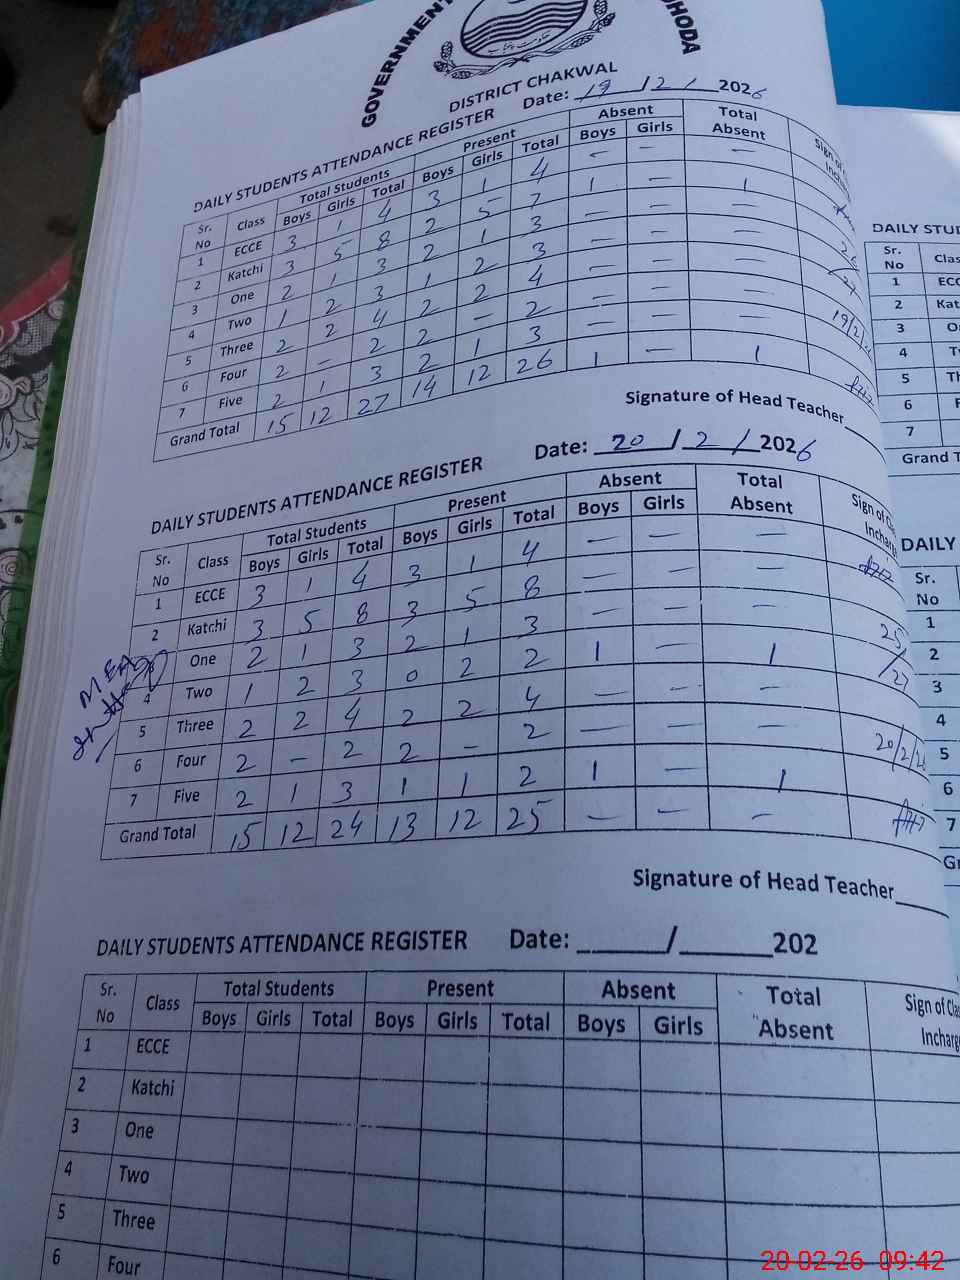 GOVERNMENT
HODA
DISTRICT CHAKWAL
DAILY STUDENTS ATTENDANCE REGISTER Date: 19/2/2026
Sr. No Class Total Students Present Absent Total Absent Sign of
Boys Girls Total Boys Girls Total Boys Girls
1 ECCE 3 1 4 3 1 4 — — —
2 Katchi 3 5 8 2 5 7 1 — 1
3 One 2 1 3 2 1 3 — — —
4 Two 1 2 3 1 2 3 — — —
5 Three 2 2 4 2 2 4 — — —
6 Four 2 — 2 2 — 2 — — —
7 Five 2 1 3 2 1 3 — — —
Grand Total 15 12 27 14 12 26 1 — 1
19/2/26
Signature of Head Teacher
DAILY STUDENTS ATTENDANCE REGISTER Date: 20/2/2026
Sr. No Class Total Students Present Absent Total Absent Sign of Cla Incharg
Boys Girls Total Boys Girls Total Boys Girls
1 ECCE 3 1 4 3 1 4 — — —
2 Katchi 3 5 8 3 5 8 — — —
One 2 1 3 2 1 3 — — —
4 Two 1 2 3 0 2 2 1 — 1
5 Three 2 2 4 2 2 4 — — —
6 Four 2 — 2 2 — 2 — — —
7 Five 2 1 3 1 1 2 1 — 1
Grand Total 15 12 24 13 12 25 — — —
25/27
20/2/26
MEA
Signature of Head Teacher
DAILY STUDENTS ATTENDANCE REGISTER Date: ______/______202
Sr. No Class Total Students Present Absent Total Absent Sign of Cla Incharg
Boys Girls Total Boys Girls Total Boys Girls
1 ECCE
2 Katchi
3 One
4 Two
5 Three
6 Four
DAILY STUD
Sr. No Clas
1 ECC
2 Kat
3 O
4 T
5 Th
6 F
7
Grand T
DAILY
Sr. No
1
2
3
4
5
6
7
Gr
20-02-26 09:42